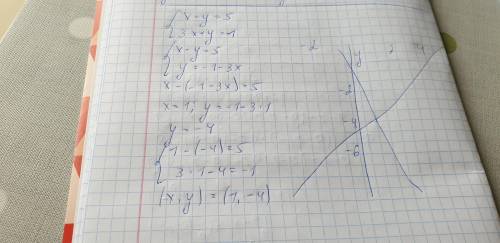 x-y=5
3x+y=-1
x-y=5
y=-1-3x
x-(-1-3x)=5
x=1; y=-1-3·1
y=-4
1-(-4)=5
3·1-4=-1
(x,y)=(1,-4)
-2
y
-2
-4
-6